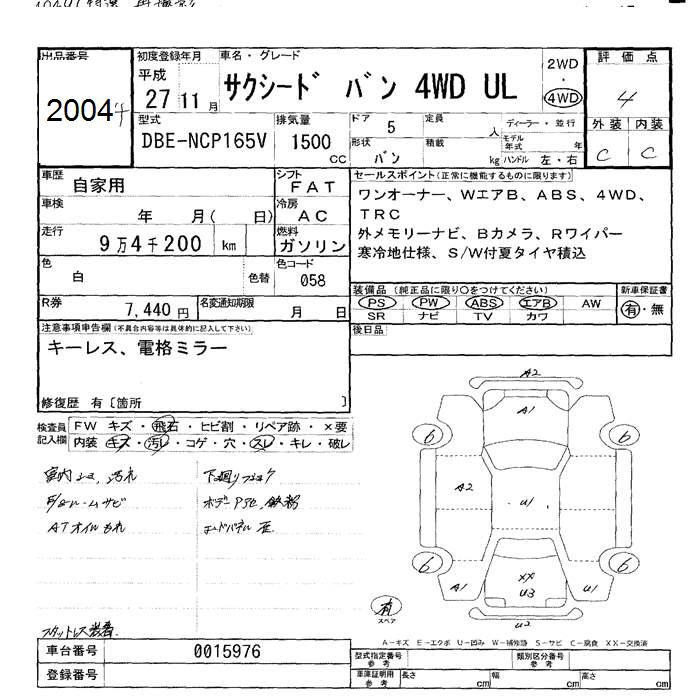 出品番号
2004
初度登録年月
平成
27 11 月
車名・グレード
サクシード バン 4WD UL
2WD
・
4WD
評価点
4
外装 内装
C C
型式
DBE-NCP165V
排気量
1500
cc
ドア 5
定員 人
形状 バン
積載 kg
ディーラー・並行
モデル年式 年
ハンドル 左・右
車歴 自家用
シフト FAT
車検 年 月( 日)
冷房 AC
走行 9万4千200 km
燃料 ガソリン
色 白
色替
色コード 058
R券 7,440円
名変通知期限 月 日
セールスポイント(正常に機能するものに限ります)
ワンオーナー、WエアB、ABS、4WD、
TRC
外メモリーナビ、Bカメラ、Rワイパー
寒冷地仕様、S/W付夏タイヤ積込
装備品(純正品に限り〇をつけてください)
新車保証書
PS PW ABS エアB AW
SR ナビ TV カワ
有・無
後日品
注意事項申告欄(不具合内容等は具体的に記入して下さい)
キーレス、電格ミラー
修復歴 有〔箇所 〕
検査員記入欄
FW キズ・飛石・ヒビ割・リペア跡・×要
内装 キズ・汚レ・コゲ・穴・スレ・キレ・破レ
室内 汚れ
下廻り
サビ
ATオイル
A2
A1
6 6
A2
U1
6 6
A1
XX
U3
U1
U2
有
スペア
A-キズ E-エクボ U-凹み W-補修跡 S-サビ C-腐食 XX-交換済
車台番号 0015976
登録番号
型式指定番号 参考
類別区分番号 参考
車庫証明用 参考
長さ cm
幅 cm
高さ cm